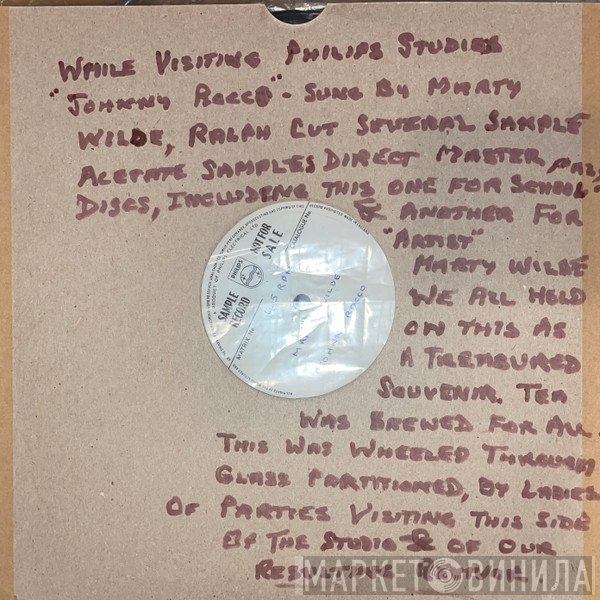 WHILE VISITING PHILIPS STUDIOS
"JOHNNY ROCCO" - SUNG BY MARTY
WILDE, RALPH CUT SEVERAL SAMPLE
ACETATE SAMPLES DIRECT MASTER
DISCS, INCLUDING THIS ONE FOR SCHOOL
& ANOTHER FOR
"ARTIST"
MARTY WILDE
WE ALL HELD
ON THIS AS
A TREASURED
SOUVENIR. TEA
WAS BREWED FOR ALL.
THIS WAS WHEELED THROUGH
GLASS PARTITIONED, BY LADIES
OF PARTIES VISITING THIS SIDE
OF THE STUDIO & OF OUR
NOT FOR
SALE
CATALOGUE No.
PHILIPS
SAMPLE
RECORD
MATRIX No.
45 RPM
MARTY WILDE
JOHNNY ROCCO
МАРКЕТ ВИНИЛА